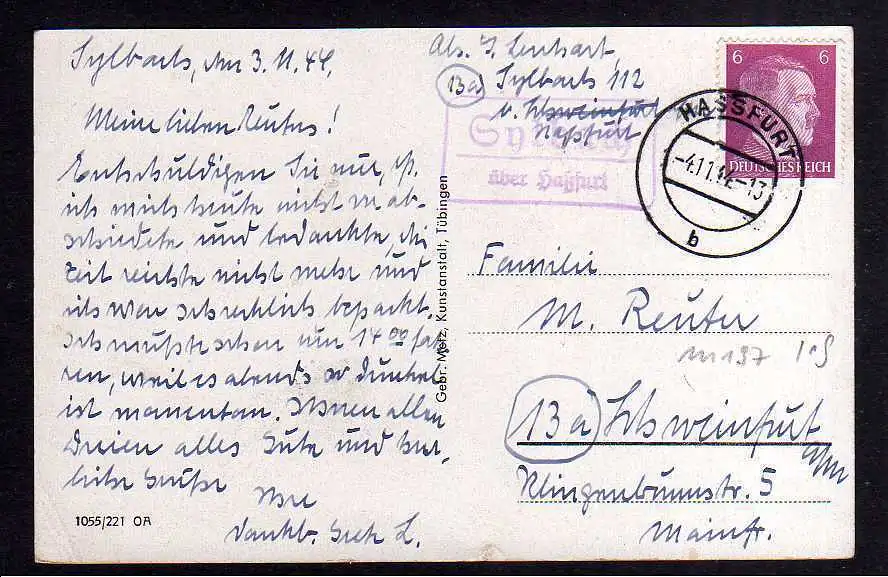 Sylbach, den 3.11.44.
Meine lieben Reuters!
Entschuldigen Sie nur, dß
ich mich heute nicht verab-
schiedete und bedankte, die
Zeit reichte nicht mehr und
ich war schrecklich bepackt.
Ich mußte schon um 14 00 fah-
ren, weil es abends so dunkel
ist momentan. Ihnen allen
Dreien alles Gute und herz-
liche Grüße
Ihre
dankb. Gretl L.
1055/221 OA
Gebr. Metz, Kunstanstalt, Tübingen
Abs. J. Lenhart,
13a) Sylbach 112
ü. Schweinfurt
Haßfurt
Sylbach
über Haßfurt
6 6
DEUTSCHES REICH
HASSFURT
-4.11. -13
b
Familie
M. Reuter
m 197
13a) Schweinfurt
Main
Klingenbrunnstr. 5
Mainfr.